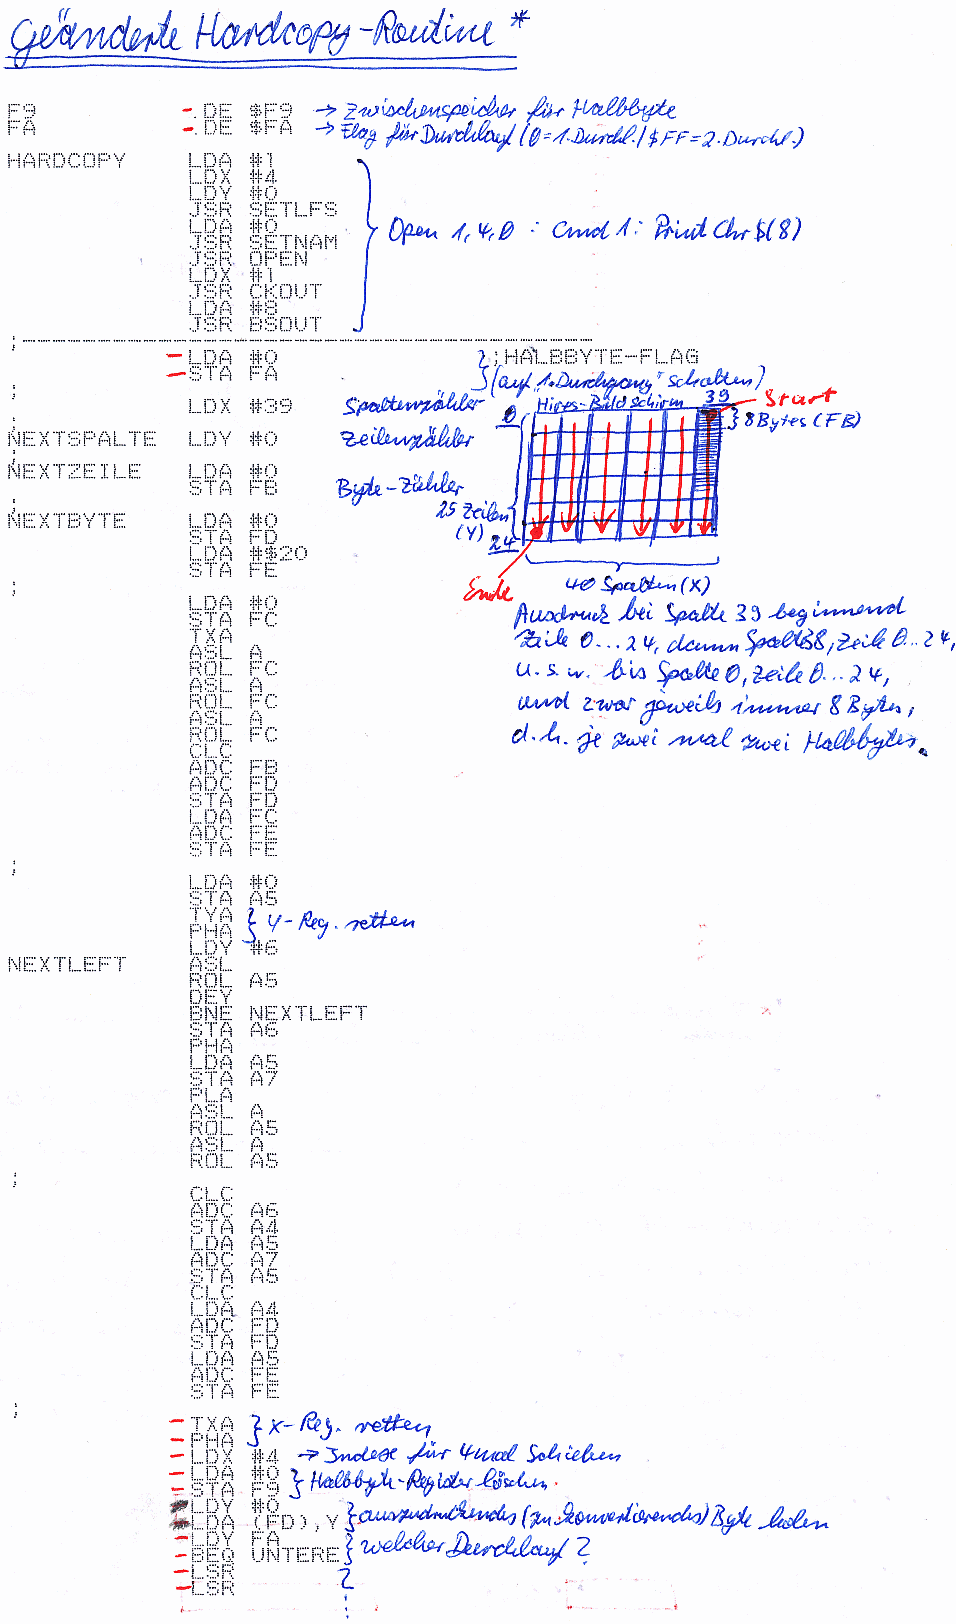 Geänderte Hardcopy-Routine *
F9 .DE $F9 → Zwischenspeicher für Halbbyte
FA .DE $FA → Flag für Durchlauf (0=1.Durchl./$FF=2.Durchl.)
HARDCOPY LDA #1
LDX #4
LDY #0
JSR SETLFS
LDA #0
JSR SETNAM
JSR OPEN
LDX #1
JSR CKOUT
LDA #8
JSR BSOUT
Open 1,4,0 : Cmd 1 : Print Chr$(8)
;---
LDA #0 ;HALBBYTE-FLAG
STA FA (auf "1.Durchgang" schalten)
;
LDX #39 Spaltenzähler
;
NEXTSPALTE LDY #0 Zeilenzähler
;
NEXTZEILE LDA #0
STA FB Byte-Zähler
;
NEXTBYTE LDA #0
STA FD
LDA #$20
STA FE
Hires-Bildschirm
0
39
Start
8 Bytes (FB)
25 Zeilen
(Y)
24
Ende
40 Spalten (X)
Ausdruck bei Spalte 39 beginnend
Zeile 0...24, dann Spalte 38, Zeile 0...24,
u.s.w. bis Spalte 0, Zeile 0...24,
und zwar jeweils immer 8 Bytes,
d.h. je zwei mal zwei Halbbytes.
;
LDA #0
STA FC
TXA
ASL A
ROL FC
ASL A
ROL FC
ASL A
ROL FC
CLC
ADC FB
ADC FD
STA FD
LDA FC
ADC FE
STA FE
;
LDA #0
STA A5
TYA
PHA } Y-Reg. retten
LDY #6
NEXTLEFT ASL
ROL A5
DEY
BNE NEXTLEFT
STA A6
PHA
LDA A5
STA A7
PLA
ASL A
ROL A5
ASL A
ROL A5
;
CLC
ADC A6
STA A4
LDA A5
ADC A7
STA A5
CLC
LDA A4
ADC FD
STA FD
LDA A5
ADC FE
STA FE
;
TXA
PHA } X-Reg. retten
LDX #4 → Indexe für 4mal Schieben
LDA #0
STA F9 } Halbbyte-Register löschen.
LDY #0
LDA (FD),Y } auszudruckendes (zu konvertierendes) Byte holen
LDY FA
BEQ UNTERE } welcher Durchlauf?
LSR
LSR